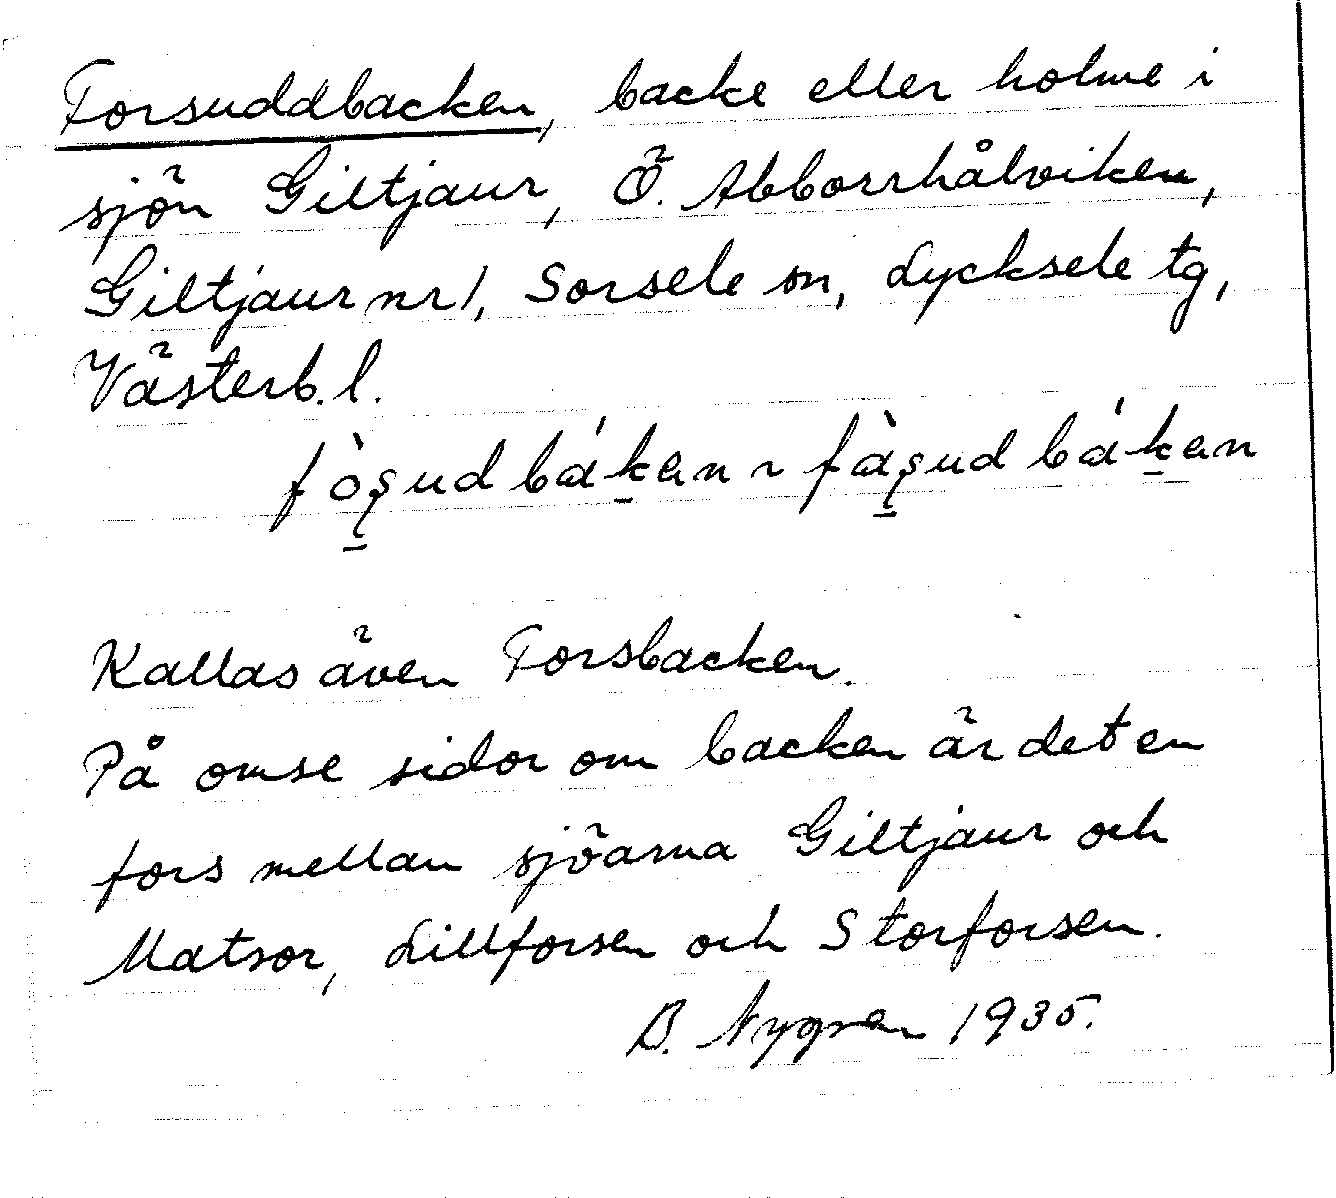 Forsuddbacken, backe eller holme i
sjön Giltjaur, Ö. Abborrhålviken,
Giltjaur nr 1, Sorsele sn, Lycksele tg,
Västerb. l.
fò̱ʂud bák̠en ~ fà̱ʂud bák̠en
Kallas även Forsbacken.
På omse sidor om backen är det en
fors mellan sjöarna Giltjaur och
Matsor, Lillforsen och Storforsen.
B. Nygren 1935.